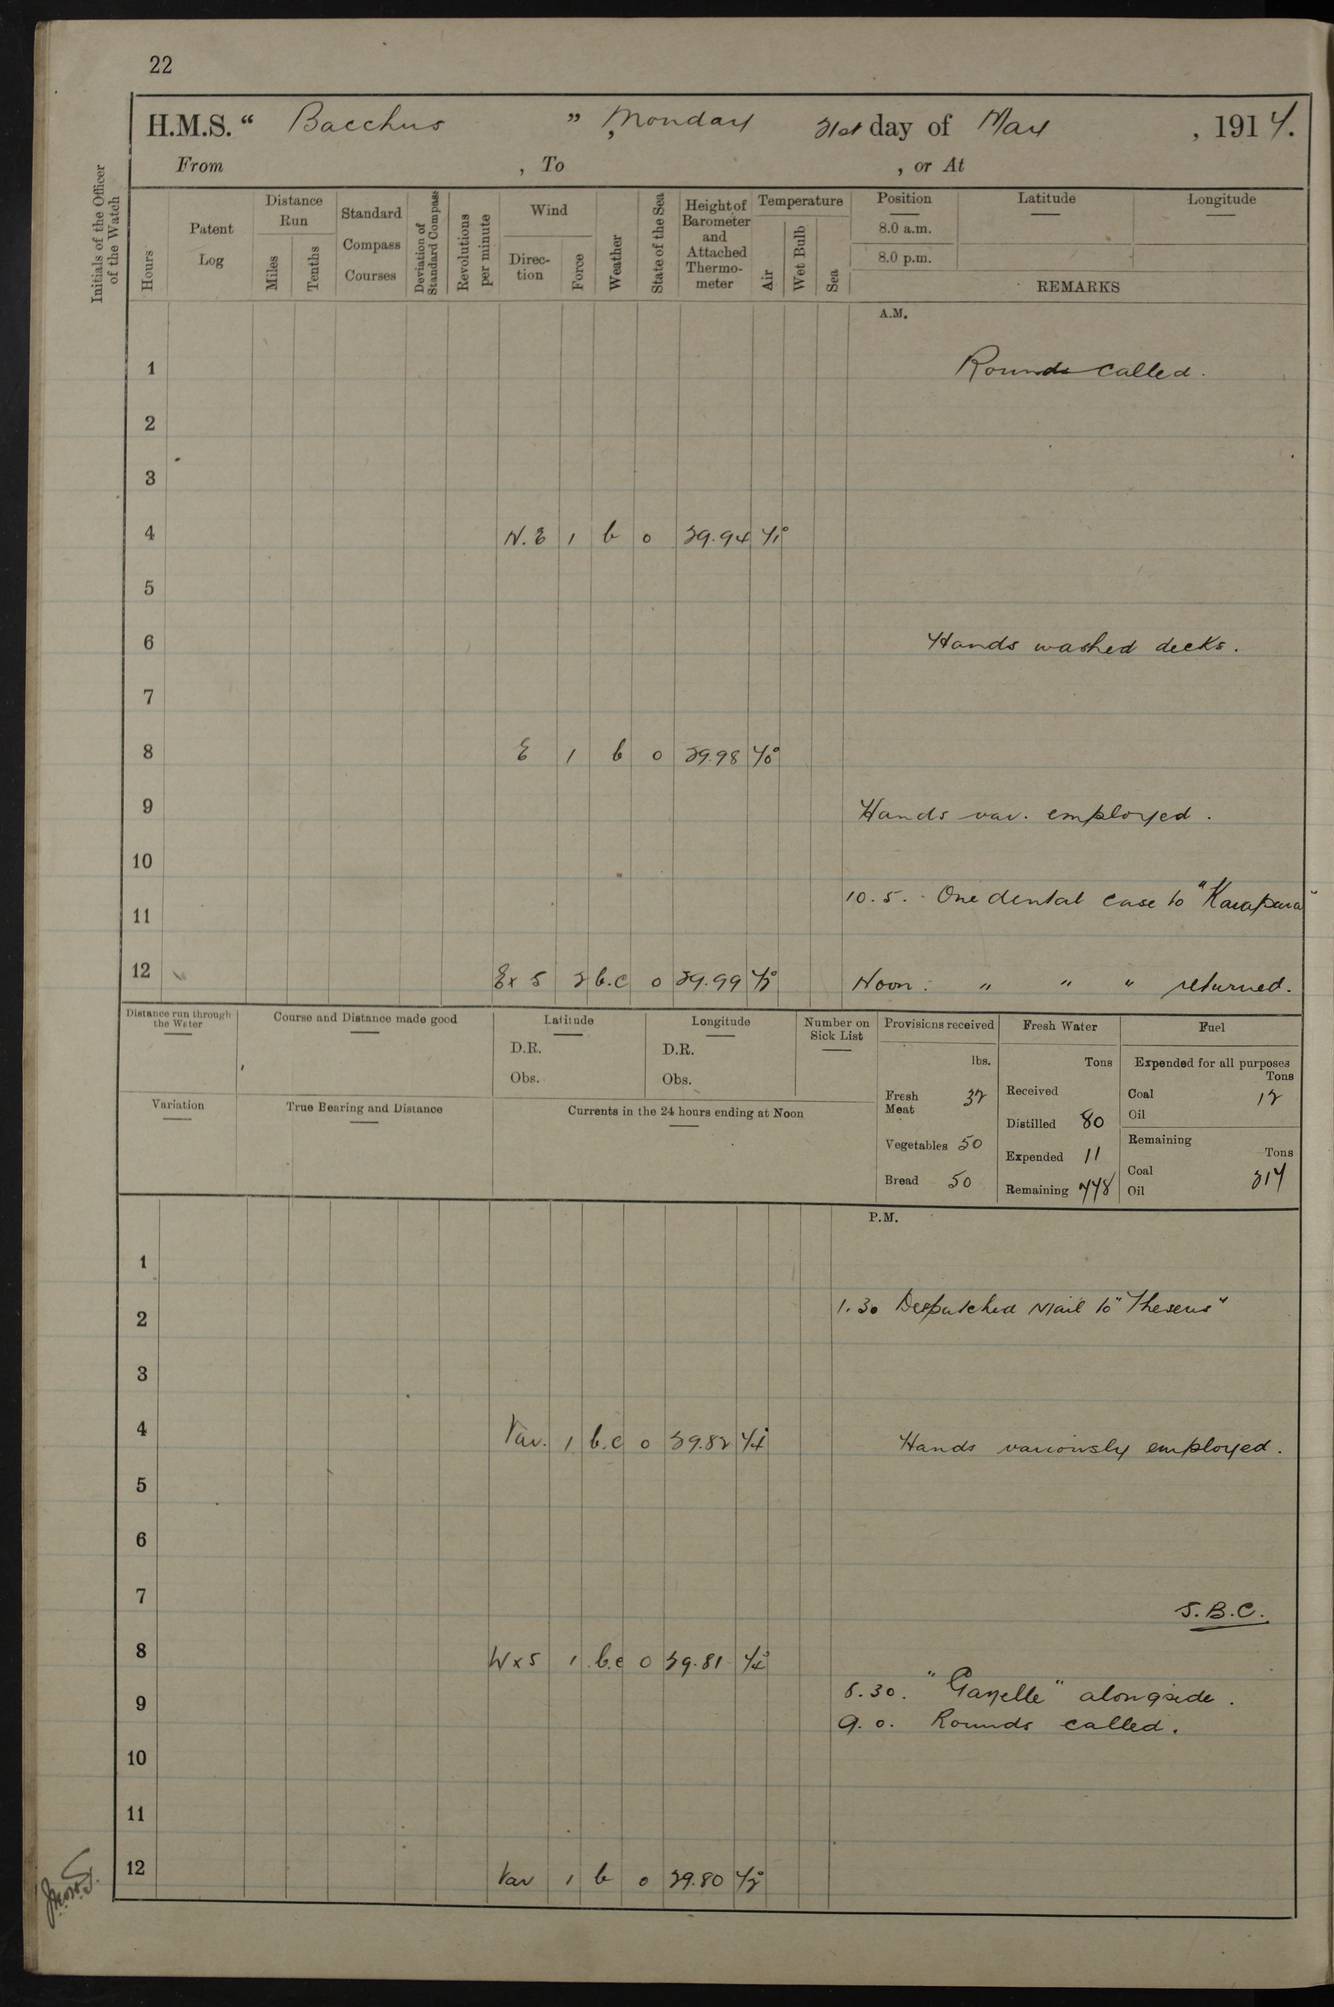 22
H.M.S. " Bacchus ", Monday 21st day of May, 1917.
From , To , or At
Initials of the Officer of the Watch
Hours Patent Log Distance Run Miles Tenths Standard Compass Courses Deviation of Standard Compass Revolutions per minute Wind Direction Force Weather State of the Sea Height of Barometer and Attached Thermometer Temperature Air Wet Bulb Sea
Position Latitude Longitude
8.0 a.m.
8.0 p.m.
REMARKS
A.M.
1 Rounds called.
2
3
4 N.E 1 b 0 29.94 71°
5
6 Hands washed decks.
7
8 E 1 b 0 29.98 70°
9 Hands var. employed.
10
10.5. One dental case to "Karapara"
11
12 ExS 2 b.c 0 29.99 72° Noon: " " " returned.
Distance run through the Water
Course and Distance made good
Latitude D.R. Obs.
Longitude D.R. Obs.
Number on Sick List
Variation
True Bearing and Distance
Currents in the 24 hours ending at Noon
Provisions received lbs.
Fresh Meat 32
Vegetables 50
Bread 50
Fresh Water Tons
Received
Distilled 80
Expended 11
Remaining 778
Fuel
Expended for all purposes Tons
Coal 12
Oil
Remaining Tons
Coal 217
Oil
P.M.
1
1.30 Despatched Mail to "Theseus"
2
3
4 Var. 1 b.c 0 29.82 74° Hands variously employed.
5
6
7 S.B.C.
8 WxS 1 b.c 0 29.81 74°
8.30. "Gazelle" alongside.
9 9.0. Rounds called.
10
11
12 Var 1 b 0 29.80 72°